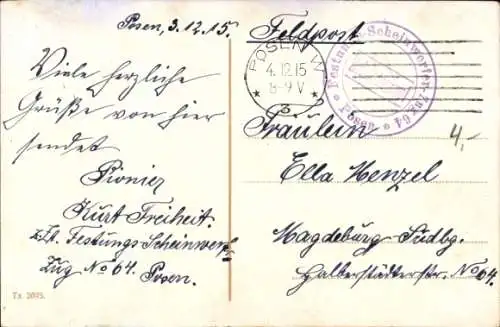 Posen, 3.12.15.
Viele herzliche
Grüße von hier
sendet
Pionier
Kurt Freiheit.
z. Zt. Festungs-Scheinwerf.
Zug No 64. Posen.
Tx. 2075.
Feldpost
POSEN W
4.12.15
8-9 V
Festungs-Scheinwerfer-Zug 64
Posen
Fräulein
Ella Henzel
Magdeburg-Südbg.
Halberstädterstr. No 64.
4,-